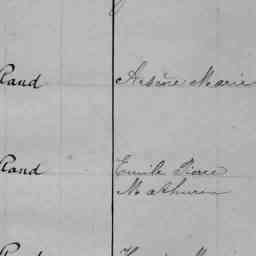 Rand Arsène Marie
Rand Emile Pierre
Mathurin